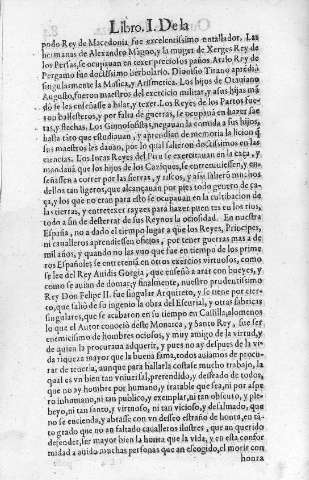 Libro. I. De la
podo Rey de Macedonia fue excelentissimo entallador. Las
hermanas de Alexandro Magno, y la muger de Xerges Rey de
los Persas, se ocupauan en texer preciosos paños. Atalo Rey de
Pergamo fue doctissimo herbolario. Dionisio Tirano aprédió
singularmente la Musica, y Arismetica. Los hijos de Octauiano
Augusto, fueron maestros del exercicio militar, y a sus hijas má
dó se les enseñasse a hilar, y texer. Los Reyes de los Partos fue-
ron ballesteros, y por falta de guerras, se ocupauā en hazer sae
tas, y flechas. Los Ginosofistas, negauan la comida a sus hijos,
hasta tāto que estudiauan, y aprendian de memoria la licion q̄
sus maestros les dauan, por lo qual salieron doctissimos en las
ciencias. Los Ingas Reyes del Piru se exercitauan en la caça, y
mandauā que los hijos de los Caziques, se entretuuiessen, y en-
señassen a correr por las sierras, y riscos, y assi salierō muchos
dellos tan ligeros, que alcançauan por pies todo genero de ca-
ça, y los que no eran para esto se ocupauan en la cultibacion dé
las tierras, y entretexer rayzes para hazer puentes en los rios,
todo a fin de desterrar de sus Reynos la ociosidad. En nuestra
España, no a dado el tiempo lugar a que los Reyes, Principes,
ni caualleros aprendiessen oficios, por tener guerras mas a de
mil años, y quando no las vuo que fue en tiempo de los prime
ros Españoles se entretenia en otros exercicios virtuosos, como
se lee del Rey Auidis Gorgia, que enseñó a arar con bueyes, y
como se auian de domar, y finalmente, nuestro prudentissimo
Rey Don Felipe II. fue singular Arquitecto, y se tiene por cier-
to, que salio de su ingenio la obra del Escorial, y otras fabricas
singulares, que se acabaron en su tiempo en Castilla, alomenos
lo que el Autor conocio deste Monarca, y Santo Rey, fue ser
enemicissimo de hombres ociosos, y muy amigo de la virtud, y
de quien la procuraua adquerir, y pues no ay despues de la vi-
da riqueza mayor que la buena fama, todos auiamos de procu-
rar de tenerla, aunque para hallarla costase mucho trabajo, la
qual es vn bien tan vniuersal, pretendido, y deseado de todos,
que no ay hombre por humano, y tratable que sea, ni por aspe
ro inhumano, ni tan publico, y exemplar, ni tan obscuto, y ple-
beyo, ni tan santo, y virtuoso, ni tan vicioso, y desalmado, que
no se encienda, y abrasse con vn desseo estraño de honra, en tā-
to grado que no an faltado caualleros ilustres, que an querido
defender, ser mayor bien la honra que la vida, y en esta confor
midad a auido muchas personas que an escogido, el morir con
honra